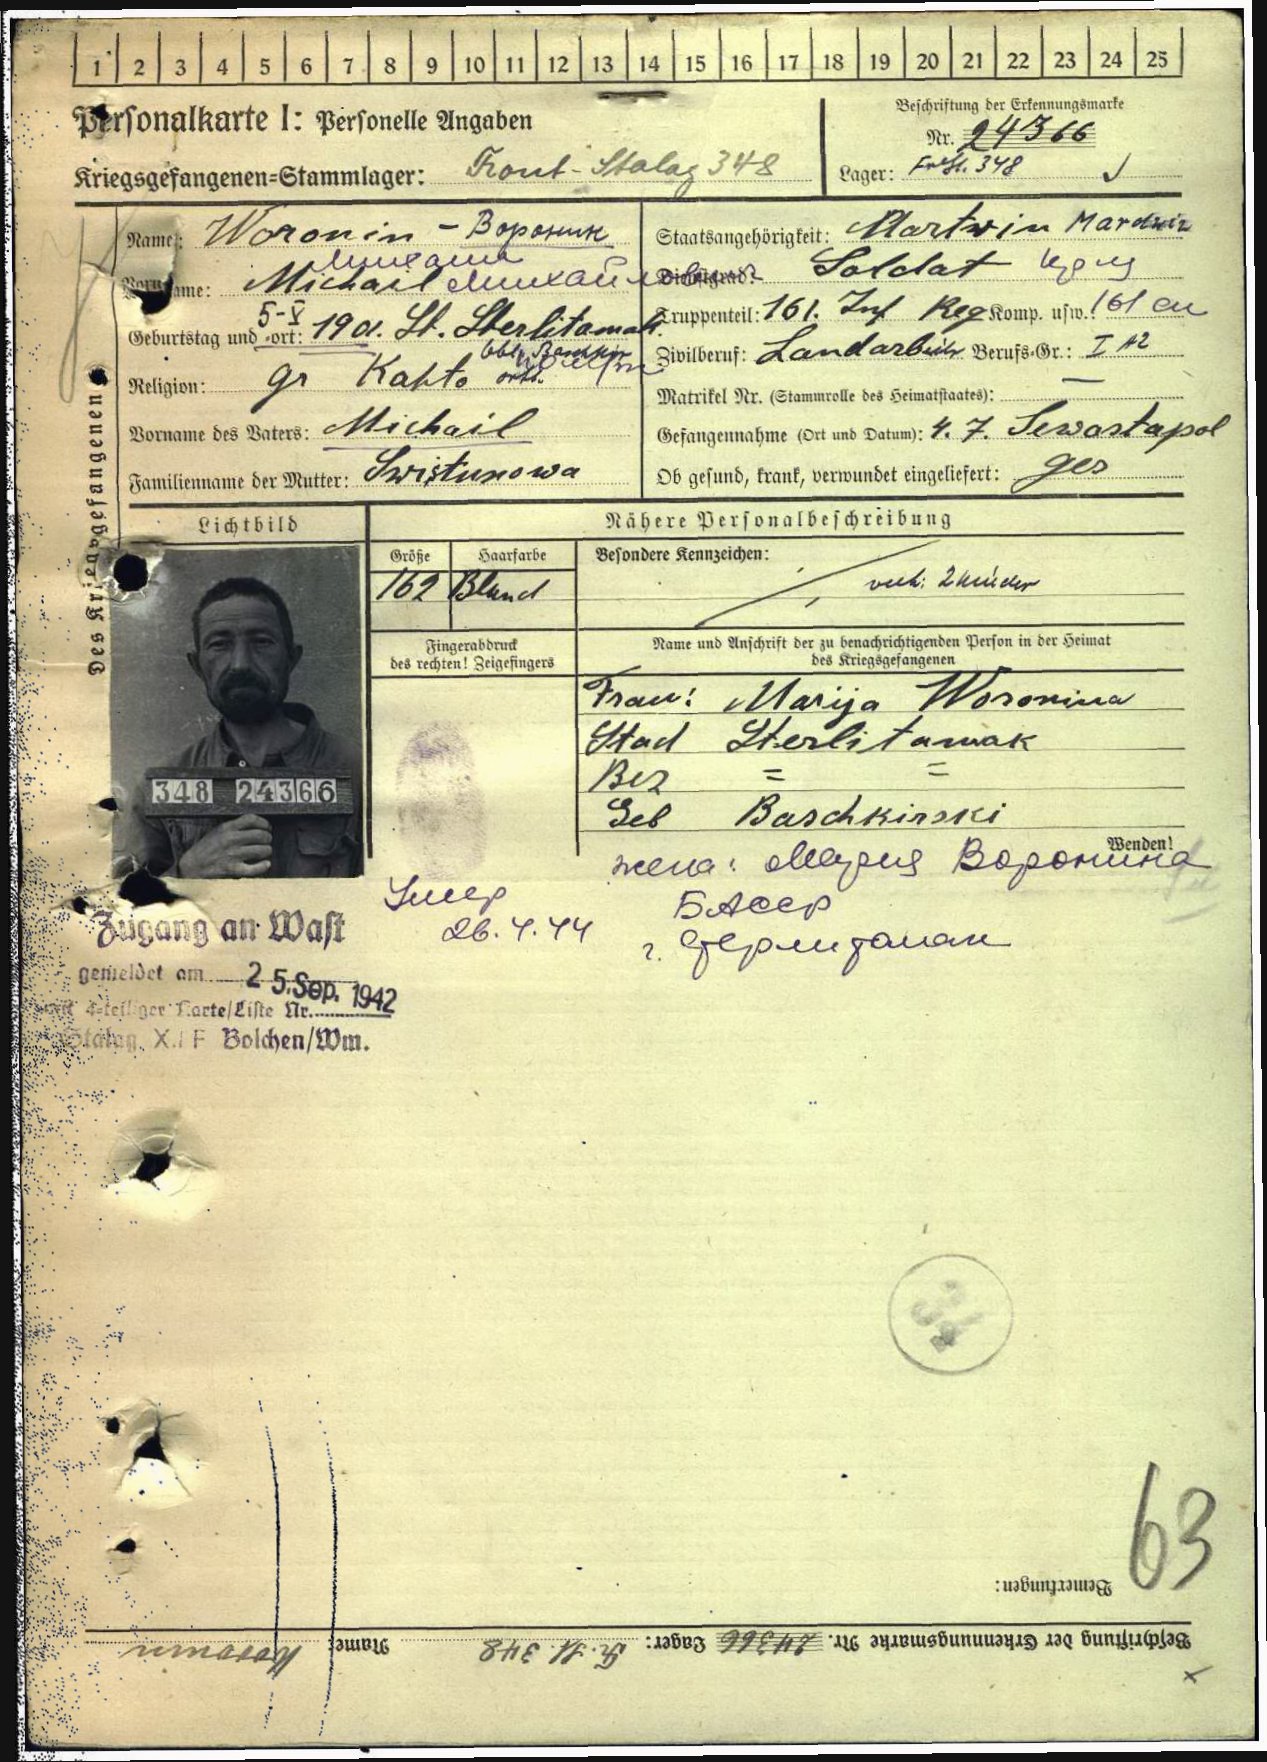 1 2 3 4 5 6 7 8 9 10 11 12 13 14 15 16 17 18 19 20 21 22 23 24 25
Personalkarte I: Personelle Angaben
Kriegsgefangenen=Stammlager: Front-Stalag 348
Beschriftung der Erkennungsmarke
Nr. 24366
Lager: Fr. St. 348
Des Kriegsgefangenen
Name: Woronin - Воронин
Михаил
Vorname: Michail Михайлович
5-X
Geburtstag und -ort: 190. St. Sterlitamak.
Religion: gr Kahto orth.
Vorname des Vaters: Michail
Familienname der Mutter: Swistunowa
Staatsangehörigkeit: Martwin Mardwin
Dienstgrad: Soldat
Truppenteil: 161. Inf Reg Komp. usw.: 161 сп
Zivilberuf: Landarbeiter Berufs-Gr.: I A2
Matrikel Nr. (Stammrolle des Heimatstaates): —
Gefangennahme (Ort und Datum): 4. 7. Sewastapol
Ob gesund, krank, verwundet eingeliefert: ges
Lichtbild
Nähere Personalbeschreibung
Größe Haarfarbe
162 Bland
Besondere Kennzeichen:
verh. 2 Kinder
Fingerabdruck
des rechten! Zeigefingers
Name und Anschrift der zu benachrichtigenden Person in der Heimat
des Kriegsgefangenen
Frau: Marija Woronina
Stad Sterlitamak
Bez = =
Geb Baschkirski
348 24366
Wenden!
жена: Мария Воронина
БАССР
г. Стерлитамак
Умер
26.4.44
Zugang an Wast
gemeldet am 25. Sep. 1942
mit 4-teiliger Karte/Liste Nr.
Stalag XII F Bolchen/Wm.
63
Bemerkungen:
Beschriftung der Erkennungsmarke Nr. 24366 Lager: Fr. St. 348 Name: Woronin